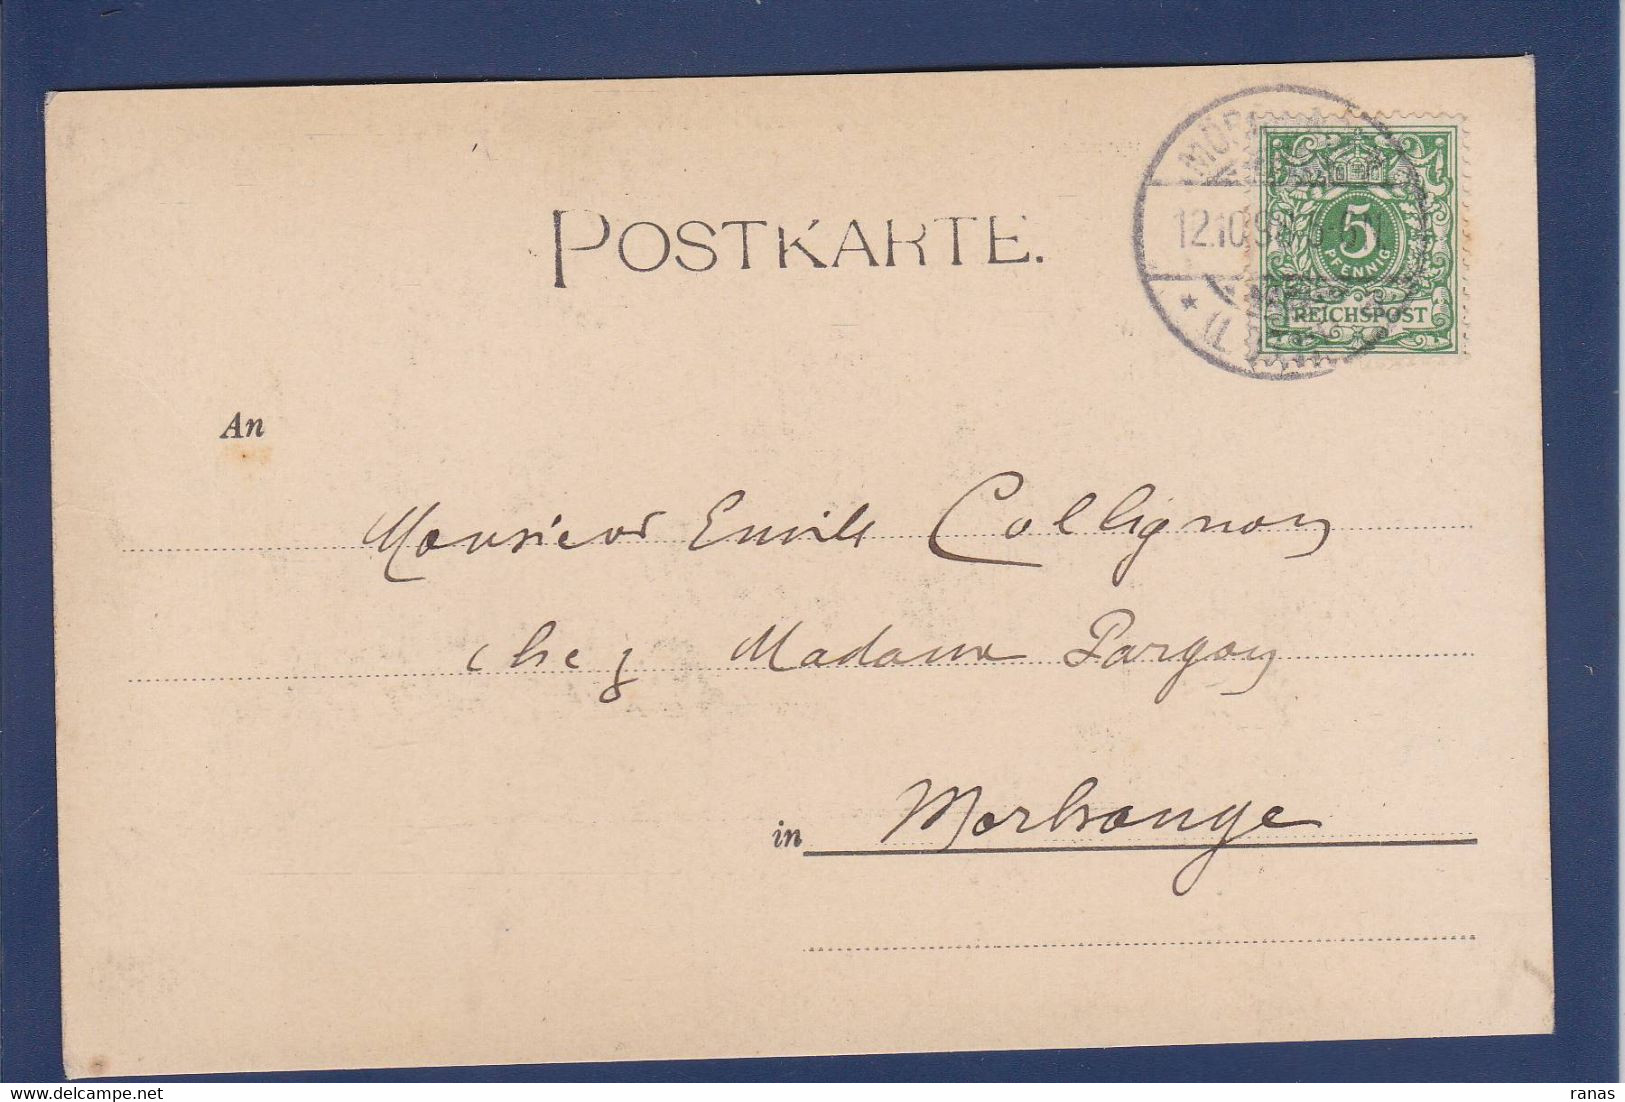 POSTKARTE.
12.10.98
5
PFENNIG
REICHSPOST
An
Monsieur Emile Collignon
chez Madame Pargon
in Morhange
ranas